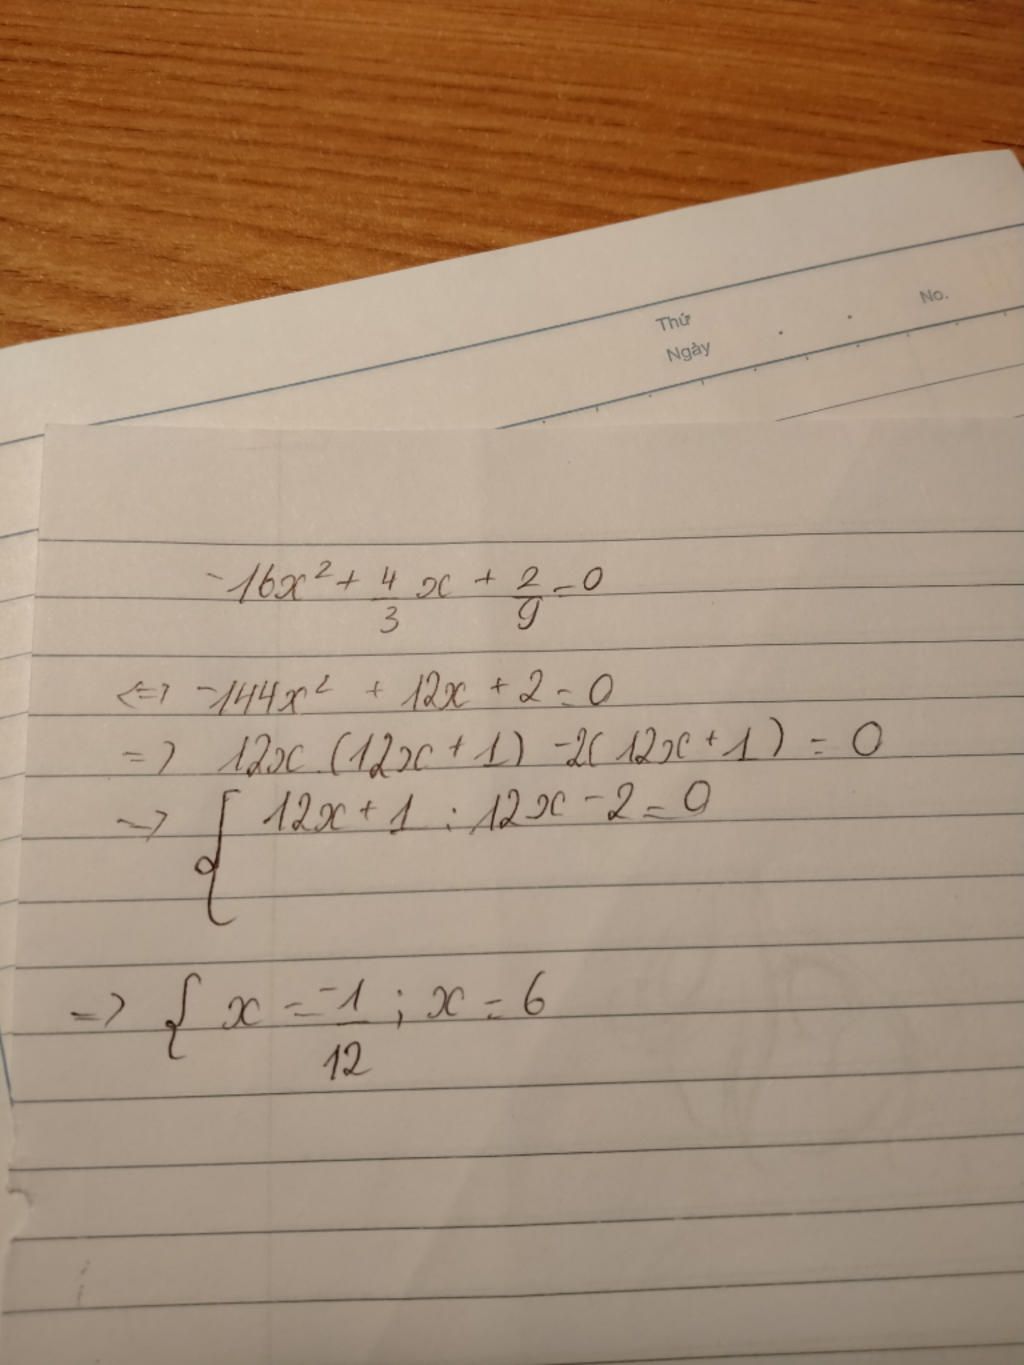 No.
Thứ
Ngày
-16x² + 4/3 x + 2/9 = 0
<=> -144x² + 12x + 2 = 0
=> 12x (12x + 1) - 2( 12x + 1 ) = 0
=> { 12x + 1 ; 12x - 2 = 0
=> { x = -1/12 ; x = 6